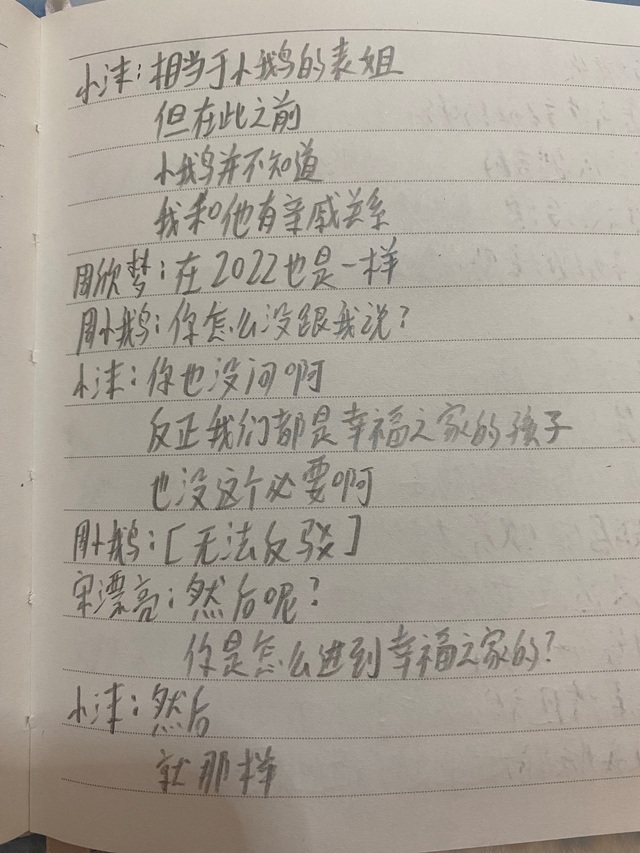 小沫：相当于小鹅的表姐
但在此之前
小鹅并不知道
我和他有亲戚关系
周欣梦：在2022也是一样
周小鹅：你怎么没跟我说？
小沫：你也没问啊
反正我们都是幸福之家的孩子
也没这个必要啊
周小鹅：[无法反驳]
宋漂亮：然后呢？
你是怎么进到幸福之家的？
小沫：然后
就那样